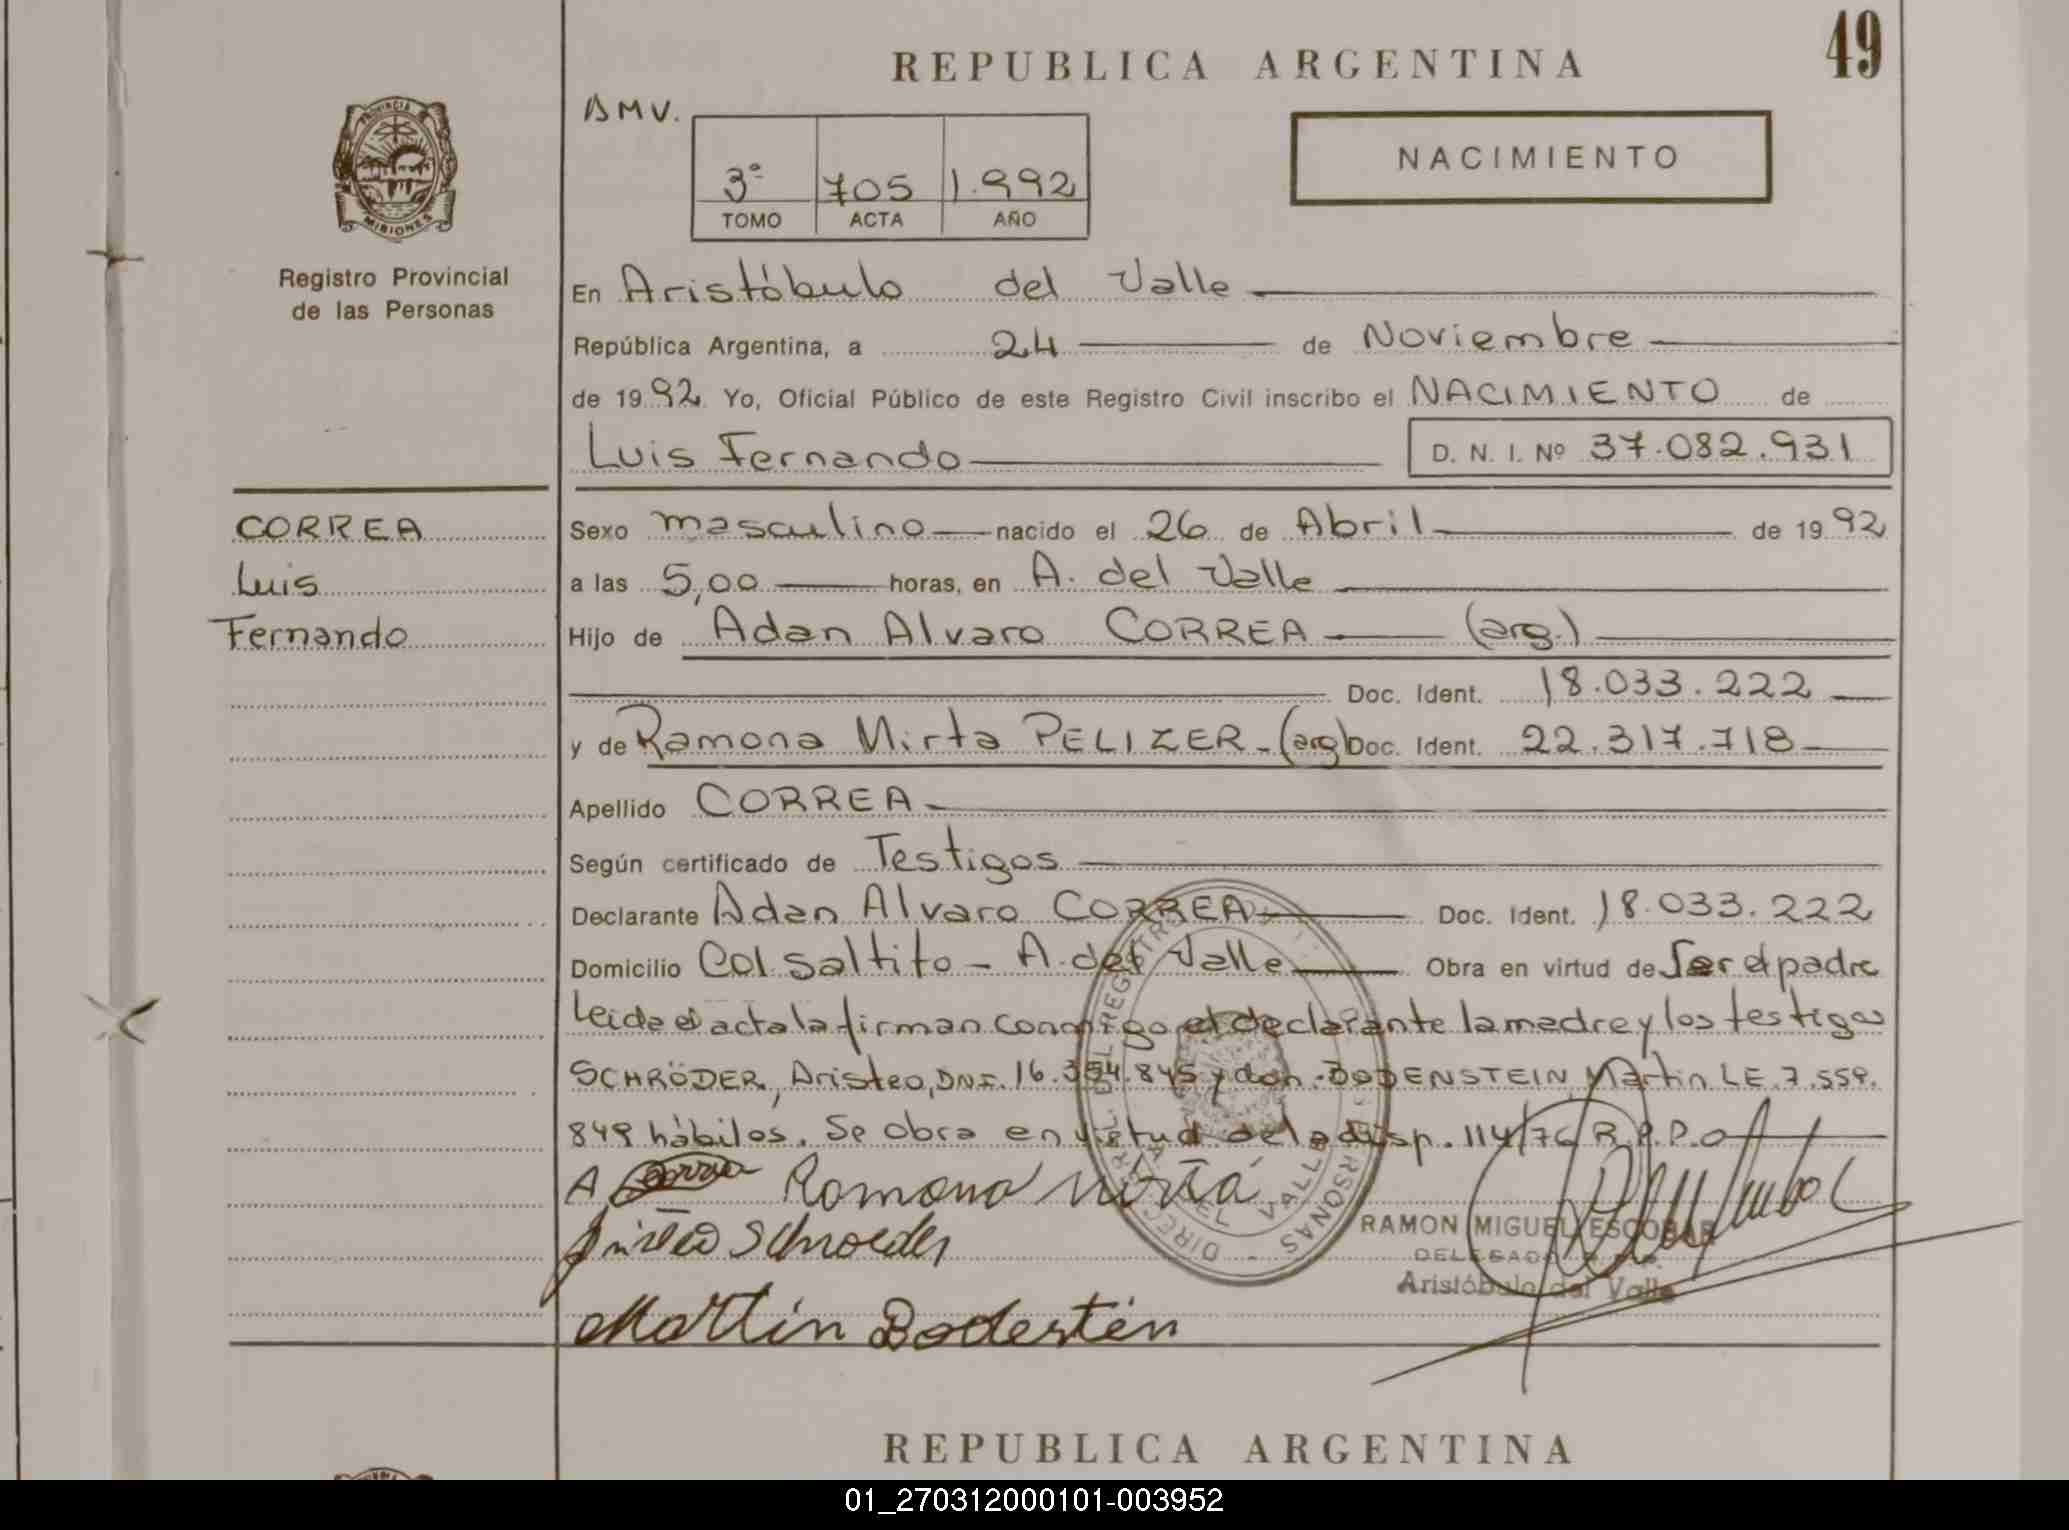 REPUBLICA ARGENTINA
49
AMV.
PROVINCIA
MISIONES
Registro Provincial
de las Personas
3º 705 1.992
TOMO ACTA AÑO
NACIMIENTO
En Aristóbulo del Valle
República Argentina, a 24 de Noviembre
de 1992 Yo, Oficial Público de este Registro Civil inscribo el NACIMIENTO de
Luis Fernando D. N. I. Nº 37.082.931
CORREA
Luis
Fernando
Sexo masculino nacido el 26 de Abril de 1992
a las 5,00 horas, en A. del Valle
Hijo de Adan Alvaro CORREA (arg.)
Doc. Ident. 18.033.222
y de Ramona Mirta PELIZER - (arg) Doc. Ident. 22.317.718
Apellido CORREA
Según certificado de Testigos
Declarante Adan Alvaro CORREA Doc. Ident. 18.033.222
Domicilio Col Saltito - A. del Valle Obra en virtud de Ser el padre
Leida el acta la firman conmigo el declarante la madre y los testigos
SCHRÖDER, Aristeo, DNI. 16.354.845 y don. BODENSTEIN Martin LE. 7.559.
849 hábilos. Se obra en virtud de la disp. 114/76 R.P.P.
A Correa Ramona Mirta
Aristeo Schroeder
Martin Bodestein
RAMON MIGUEL ESCOBAR
DELEGADO
Aristóbulo del Valle
REPUBLICA ARGENTINA
01_270312000101-003952